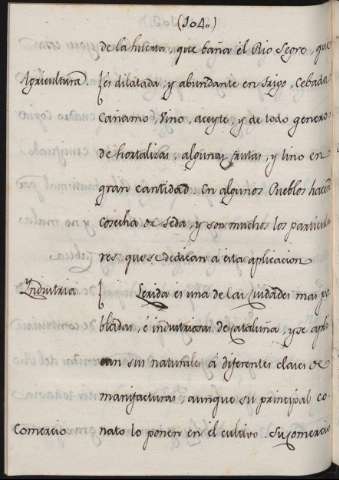 (104.)
de la huerta, que baña el Rio Segre, que
Agricultura. es dilatada, y abundante en Trigo, Cebada
Cañamo, Vino, aceyte, y de todo genero
de hortaliza, algunas frutas, y lino en
gran cantidad. En algunos Pueblos hacen
cosecha de seda, y son muchos los particula
res que se dedican a esta aplicacion
Industria Lerida es una de las Ciudades mas po
bladas, é industriosas de Cataluña, y se apli
can sus naturales á diferentes clases de
manifacturas, aunque su principal co
Comercio nato lo ponen en el cultivo. Su comercio